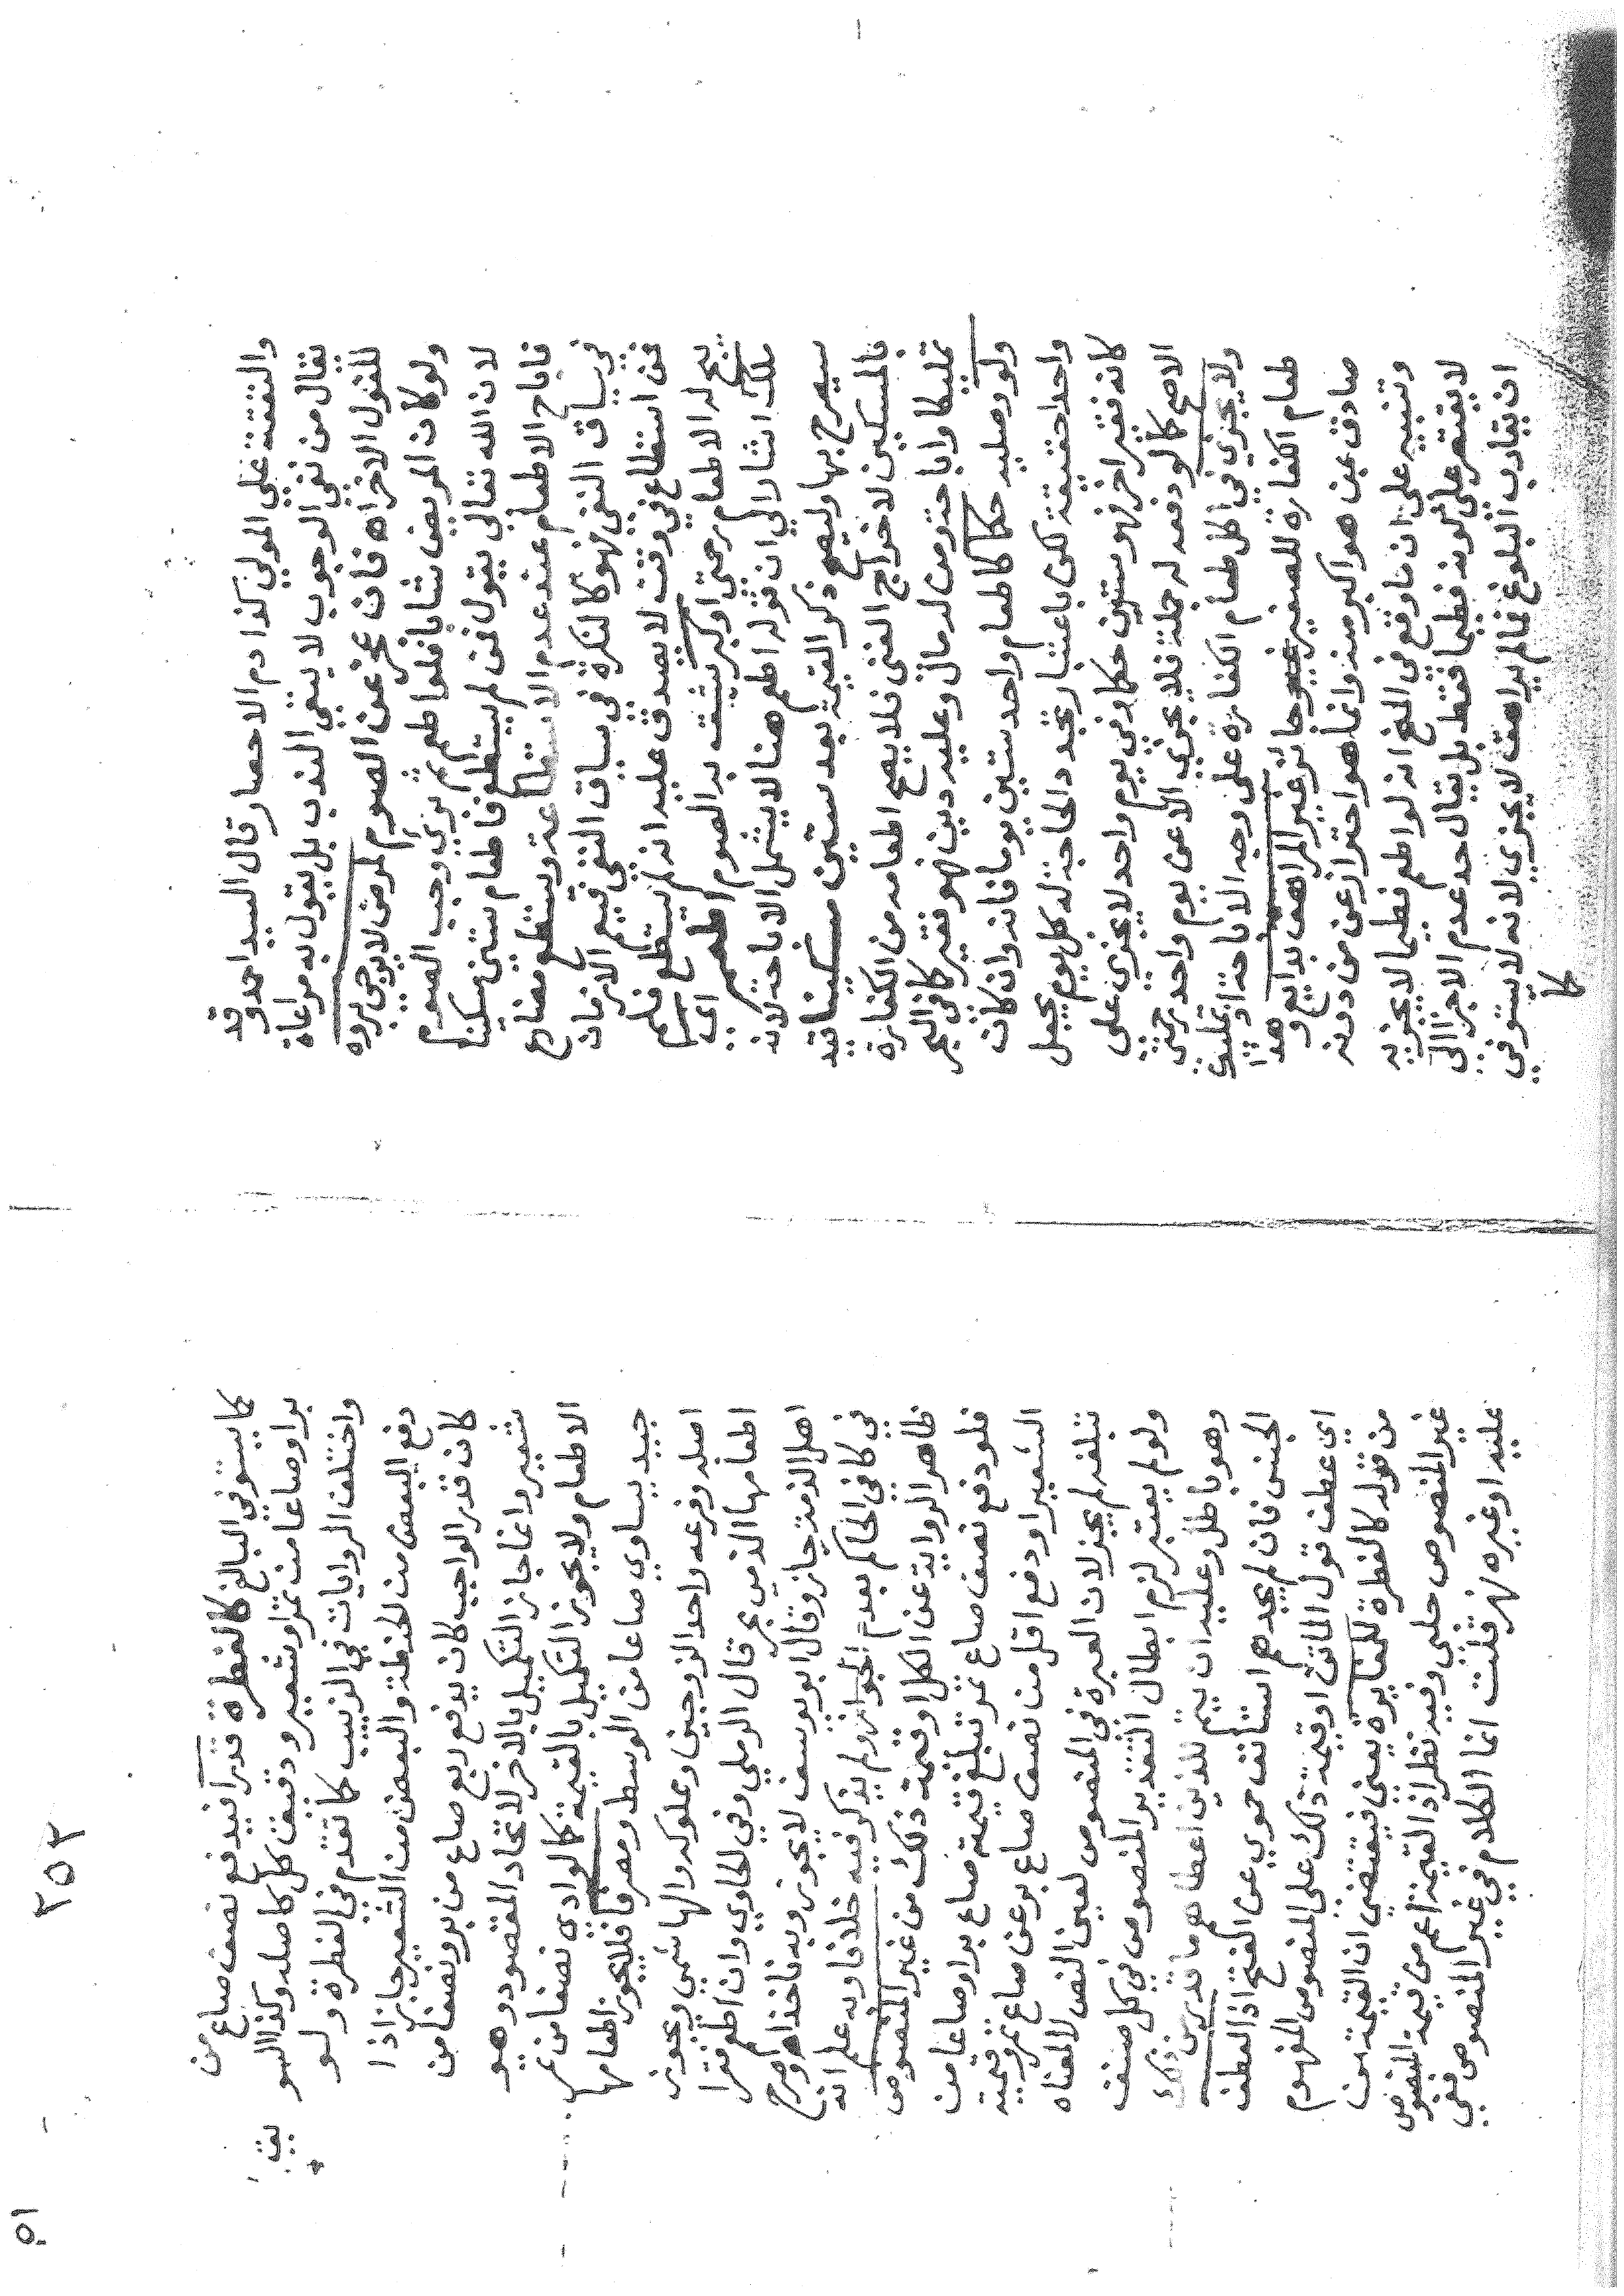 والنفقة على المولي كذا دم الاحصار قال السيد احمد وقد
يقال من نفي الوجوب لا ينتفي الندب بل يقول به مراعاة
للقول الاخر اه فان عجز عن الصوم لمرض لا يرجى بروه
ولو كان المريض شابا فلو اطعم ثم بري وجب الصوم
لان الله تعالى يقول فمن لم يستطع فاطعام ستين مسكينا
فاباح الاطعام عند عدم الاستطاعة ويستطع مضارع
في سياق النفي فهو كالنكرة في سياق النفي فيعم الازمان
فمن استطاع في وقت لا يصدق عليه انه لم يستطع فلم
يبح له الاطعام رحمتي او كبر يشق به الصوم اطعم اي
ملك اشار الى ان قوله اطعم هنا لا يشمل الاباحة لانه
سيصرح بها وليصح ذكر القيمة بعد ستين مسكينا قيد
بالمسكين لاخراج الغني فلا يصح اطعامه من الكفارة
تمليكا واباحة ومن له مال وعليه دين فهو فقير كما في البحر
ولو وصليه حكما كاطعام واحد ستين يوما فانه وان كان
واحدا حقيقة لكن باعتبار تجدد الحاجة له كل يوم يجعل
كانه فقير اخر فهو ستون حكما وفي يوم واحد لا يجزي على
الاصح كما لو دفعه له جملة فلا يجزي الا عن يوم واحد رحمتي
ولا يجزي في اكل طعام الكفارة على وجه الاباحة او تمليك
طعام الكفارة للصغير جائز غير المراهق بدايع وهذا
صادق بمن هو اكبر منه وانما هو احتراز عن من دونه
وتنبيه على ان ما وقع في المنح انه لو اطعم فطيما لا يجزيه
لا يقتصر على كونه فطيما فقط بل يقال حد عدم الاجزا الى
ان يقارب البلوغ فما لم يراهق لا يجزي لانه لا يستوفي
كما
٢٥٢
٥١
كما يستوفي البالغ كالفطرة قدرا فيدفع نصف صاع من
برا وصاعا من تمر او شعير ودقيق كل كاصله وكذا السويق
واختلف الروايات في الزبيب كما تقدم في الفطرة ولو
دفع البعض من الحنطة والبعض من الشعير جاز اذا
كان قدر الواجب كان يدفع ربع صاع من بر ونصفا من
شعير وانما جاز التكميل بالاخر لاتحاد المقصود وهو
الاطعام ولا يجوز التكميل بالقيمة كما لو ادي نصفا من تمر
جيد يساوي صاعا من الوسط ومصرفا فلا يجوز اطعامها
اصله وفرعه واحد الزوجين ومملوكه والهاشمي ويجوز
اطعامها الذمي بحر قال الرملي وفي الحاوي وان اطعم فقرا
اهل الذمة جاز وقال ابو يوسف لا يجوز وبه ناخذ اه وصرح
في كافي الحاكم بعدم الجواز ولم يذكر فيه خلافا وبه علم انه
ظاهر الرواية عن الكل او قيمة ذلك من غير المنصوص
فلو دفع نصف صاع تمر تبلغ قيمته صاع برا وصاعا من
الشعير او دفع اقل من نصف صاع بر عن صاع تمر قيمة
تبلغه لم يجز لان العبرة في المنصوص لعين النص لا لمعناه
ولو لم يعتبر لزم ابطال التقدير المنصوص في كل صنف
وهو باطل وعليه ان يتم للذين اعطاهم ما قدر من ذلك
الجنس فان لم يجدهم استانف حموي عن الفتح اذ العطف
اي عطف قول الماتن او قيمة ذلك على المنصوص المفهوم
من قوله كالفطرة للمغايرة يعني فيقتضي ان القيمة من
غير المنصوص حلبي وفيه نظر اذ القيمة اعم من قيمة المنصوص
عليه او غيره نهر قلت انما الكلام في غير المنصوص ففي